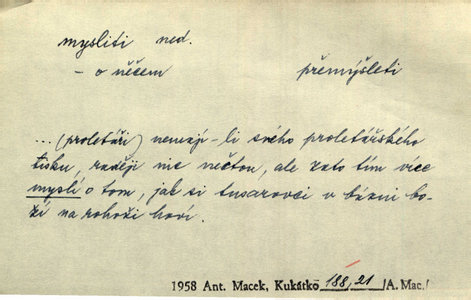 mysliti ned.
– o něčem přemýšleti
...(proletáři) nemají-li svého proletářského
tisku, raději nic nečtou, ale zato tím více
myslí o tom, jak si tusarovci v bázni bo-
ží na rohoži hoví.
1958 Ant. Macek, Kukátko 188,21 /A. Mac./